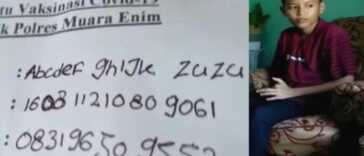 tu Vaksinasi Covid-19
k Polres Muara Enim
: Abcdef ghIJk zuzu
: 1608 1121080 9061
: 083196509552